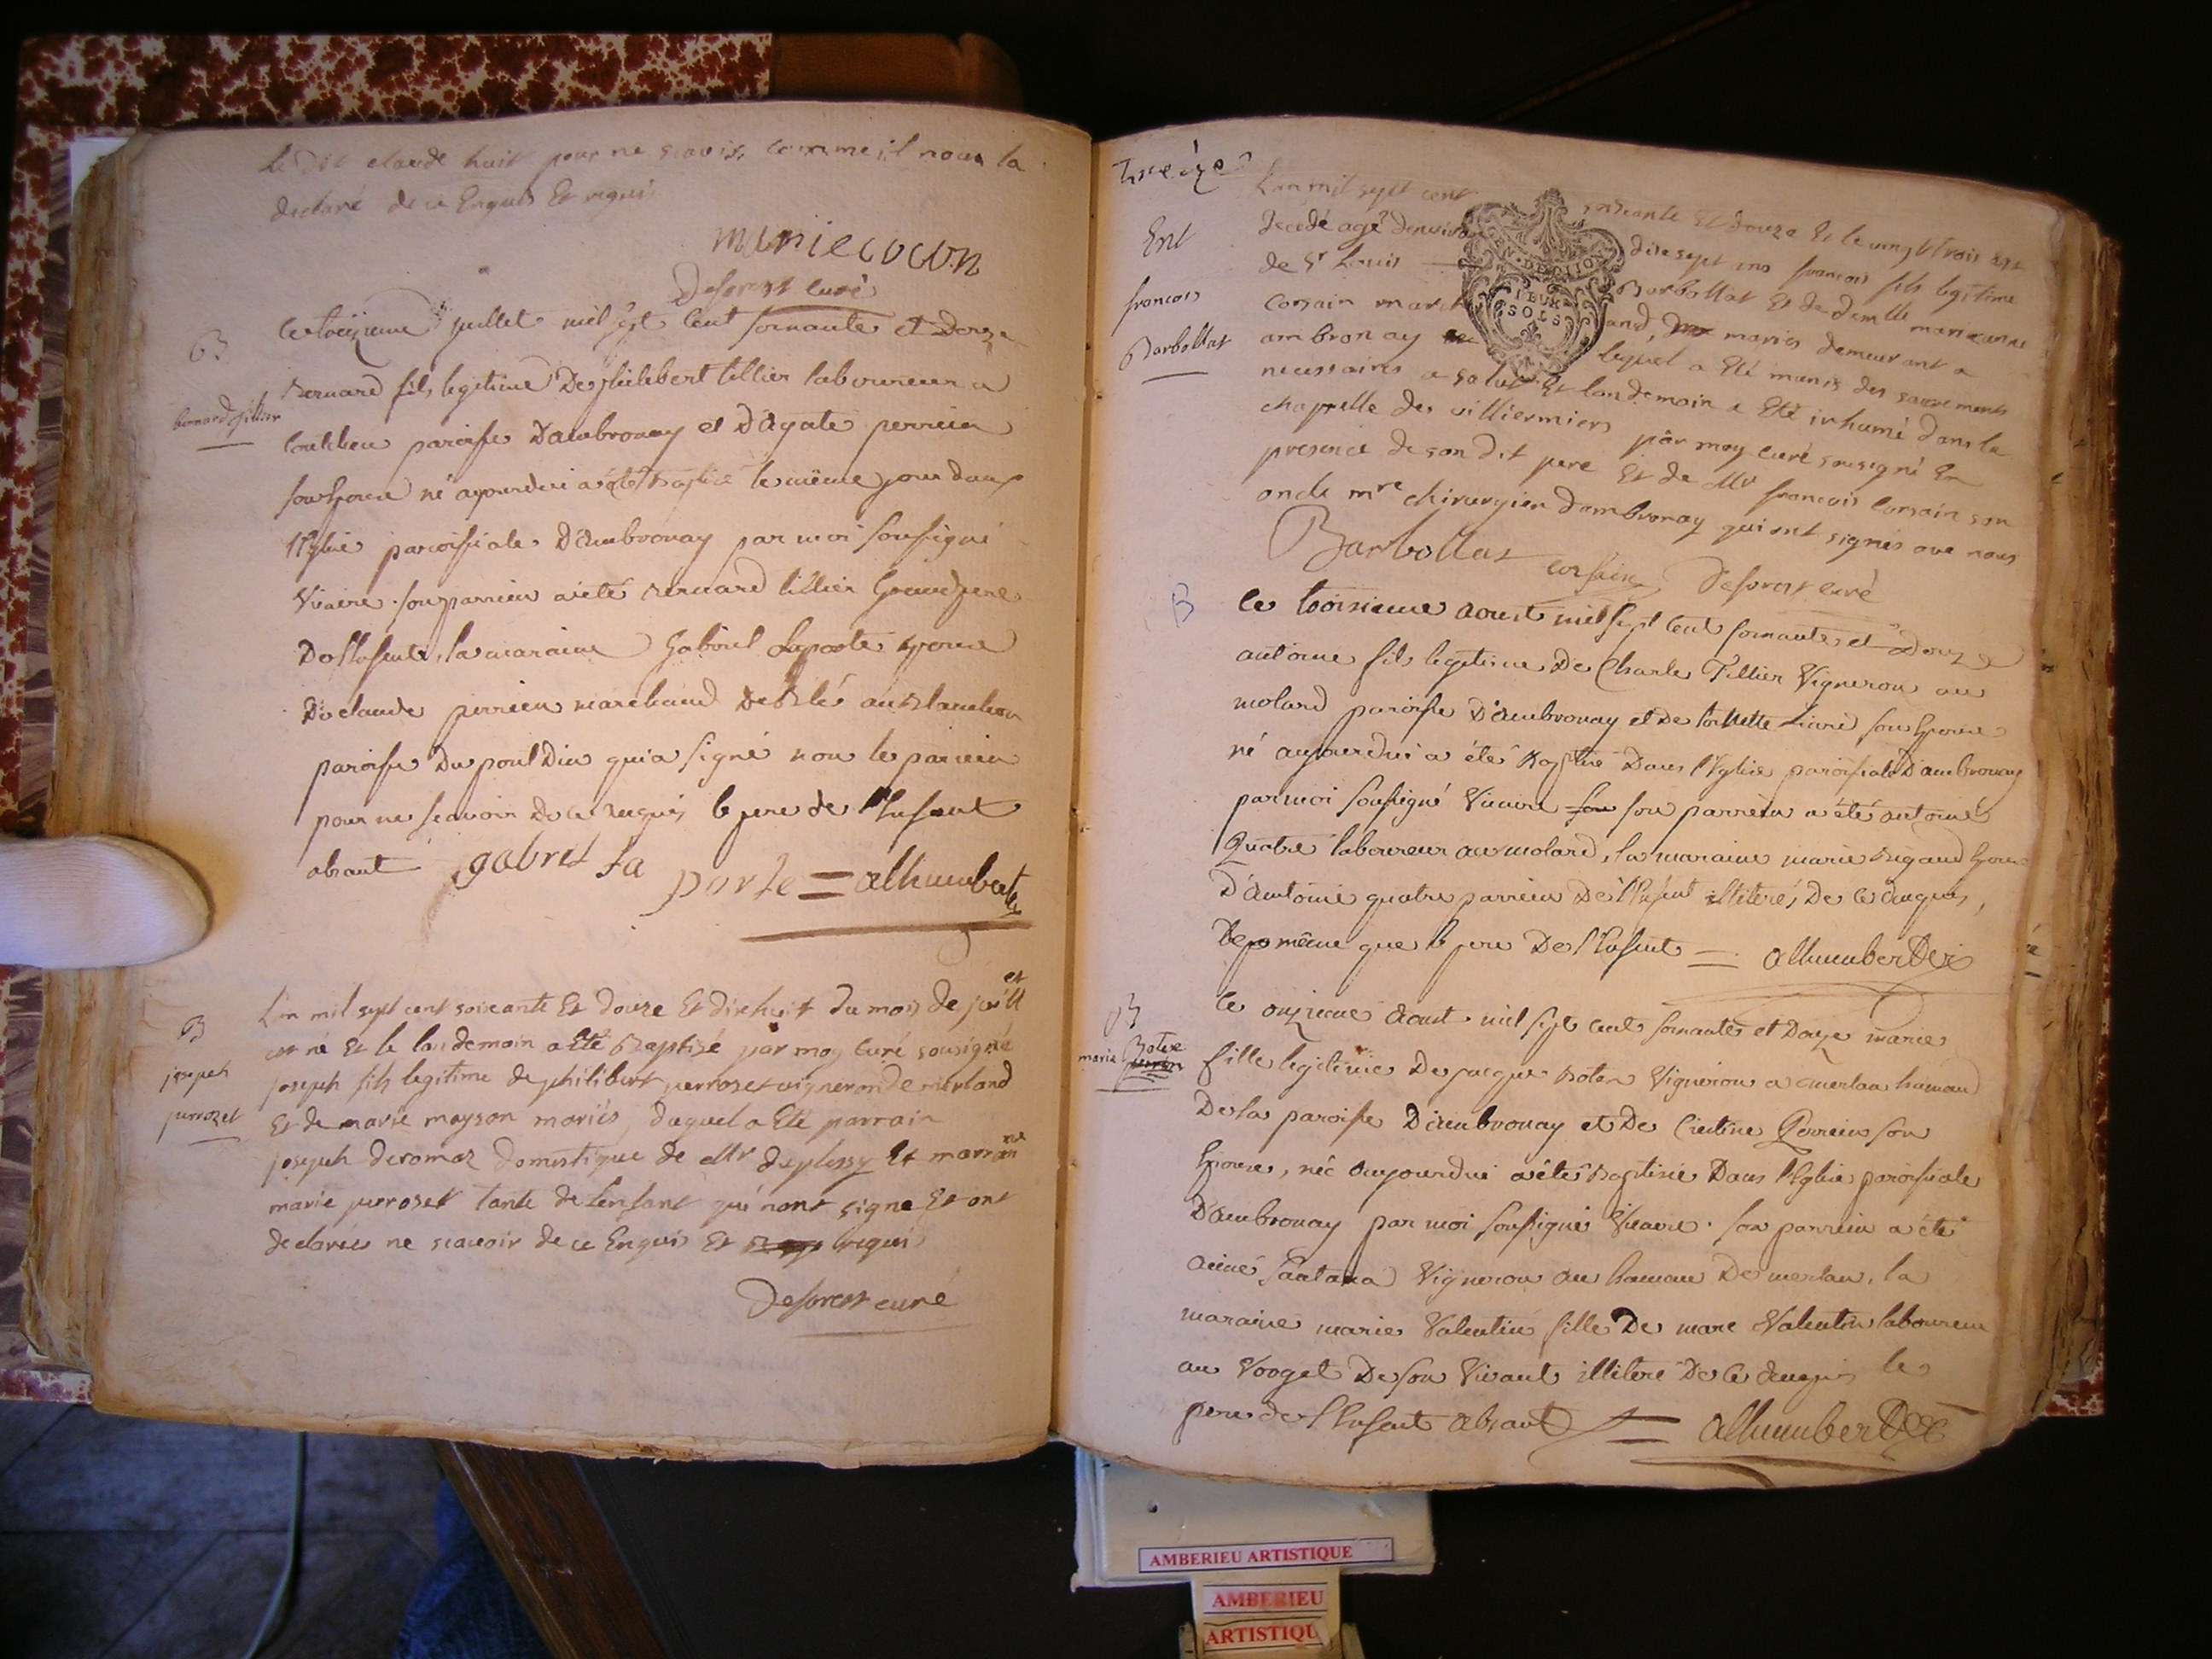 Le Dit claude huit pour ne scavoir comme il nous la
declaré de ce Enquis Et requis
marie cocon
Deforest curé
B
bernard tillier
Le treizieme juillet mil sept cent soixante et Douze
Bernard fils legitime De philebert tillier laboureur a
paroisse D'ambronay et D'agate perrein
son Epouse né aujourdui a été Baptisé le même jour dans
l'Eglise paroissiale D'ambronay par moi soussigné
Vicaire. son parrein a été Bernard tillier Grandpere
De l'Enfant, la maraine Gabriel Laporte Epouse
De claude perrein marchand De Blés au Blanchon
paroisse Du pont Din qui a signé non le parrein
pour ne scavoir De ce requis le pere de l'Enfant
absant gabriel la porte = alhumbert
B
joseph
perrozet
L'an mil sept cent soixante Et douze Et dixhuit du mois de juillet
est né Et le landemain a Eté Baptisé par moy Curé sousigné
joseph fils legitime de philibert perrozet vigneron de merland
Et de marie mayson mariés, duquel a Eté parrain
joseph deromaz domestique de Mr duplessy Et marraine
marie perroset tante de lenfant qui nont signé Et ont
declarés ne scavoir de ce Enquis Et requis
Deforest curé
treize
Ent
francois
Barbollat
L'an mil sept cent soixante Et Douze Et le vingt trois est
decedé agé denviron dixsept ans francois fils legitime
de Sr Louis Barbollat Et de demlle marieanne
Corsain march and, mariés demeurant a
ambronay lequel a Eté munis des sacrements
necessaires a salut Et landemain a Eté inhumé dans la
chappelle des villiermiers par moy curé sousigné En
presence de son dit pere Et de Mr francois Corsain son
oncle mre chirurgien dambronay qui ont signés avec nous
Barbollat corsain Deforest curé
B
Le troisieme aoust mil sept cent soixante et Douze
antoine fils legitime De Charle Tillier Vigneron au
molard paroisse D'ambronay et De son Epouse
né aujourdui a été Baptisé Dans l'Eglise paroissiale D'ambronay
par moi soussigné Vicaire son parrein a été antoine
Quatre laboureur au molard, la maraine marie Rigaud Epouse
D'antoine quatre parrein De l'Enfant illiterés De ce enquis,
De même que le pere De l'Enfant = alhumbert
B
marie Boten
Le onzieme Aoust mil sept cent soixante et Douze marie
fille legitime De jacque Boten Vigneron a merlan hameau
De la paroisse D'ambronay et De Perrein son
Epouse, née aujourdui a été Baptisée Dans l'Eglise paroissiale
D'ambronay par moi soussigné Vicaire. son parrein a été
aimé Vigneron au hameau De merlan, la
maraine marie Valentin fille De marc Valentin laboureur
au Vorget De son Vivant illiteré De ce enquis le
pere de l'Enfant absant = alhumbert
AMBERIEU ARTISTIQUE
AMBERIEU
ARTISTIQU